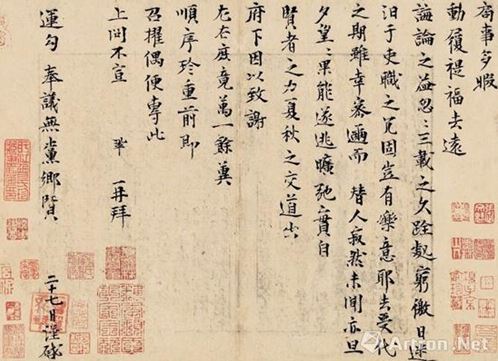 局事多暇
動履禔福去遠
誨論之益忽〻三載之久跧處窮徼日迷
汩于吏職之冗固豈有樂意耶去受代
之期雖幸密邇而替人寂然未聞亦旦
夕望〻果能遂逃曠弛之實自
賢者之力夏秋之交道出
府下因以致謝
左右庶竟萬一餘冀
順序珍重前即
召擢偶便專此
上問不宣 鞏 再拜
運勾 奉議無黨鄉賢
二十七日謹啟
Artron.Net